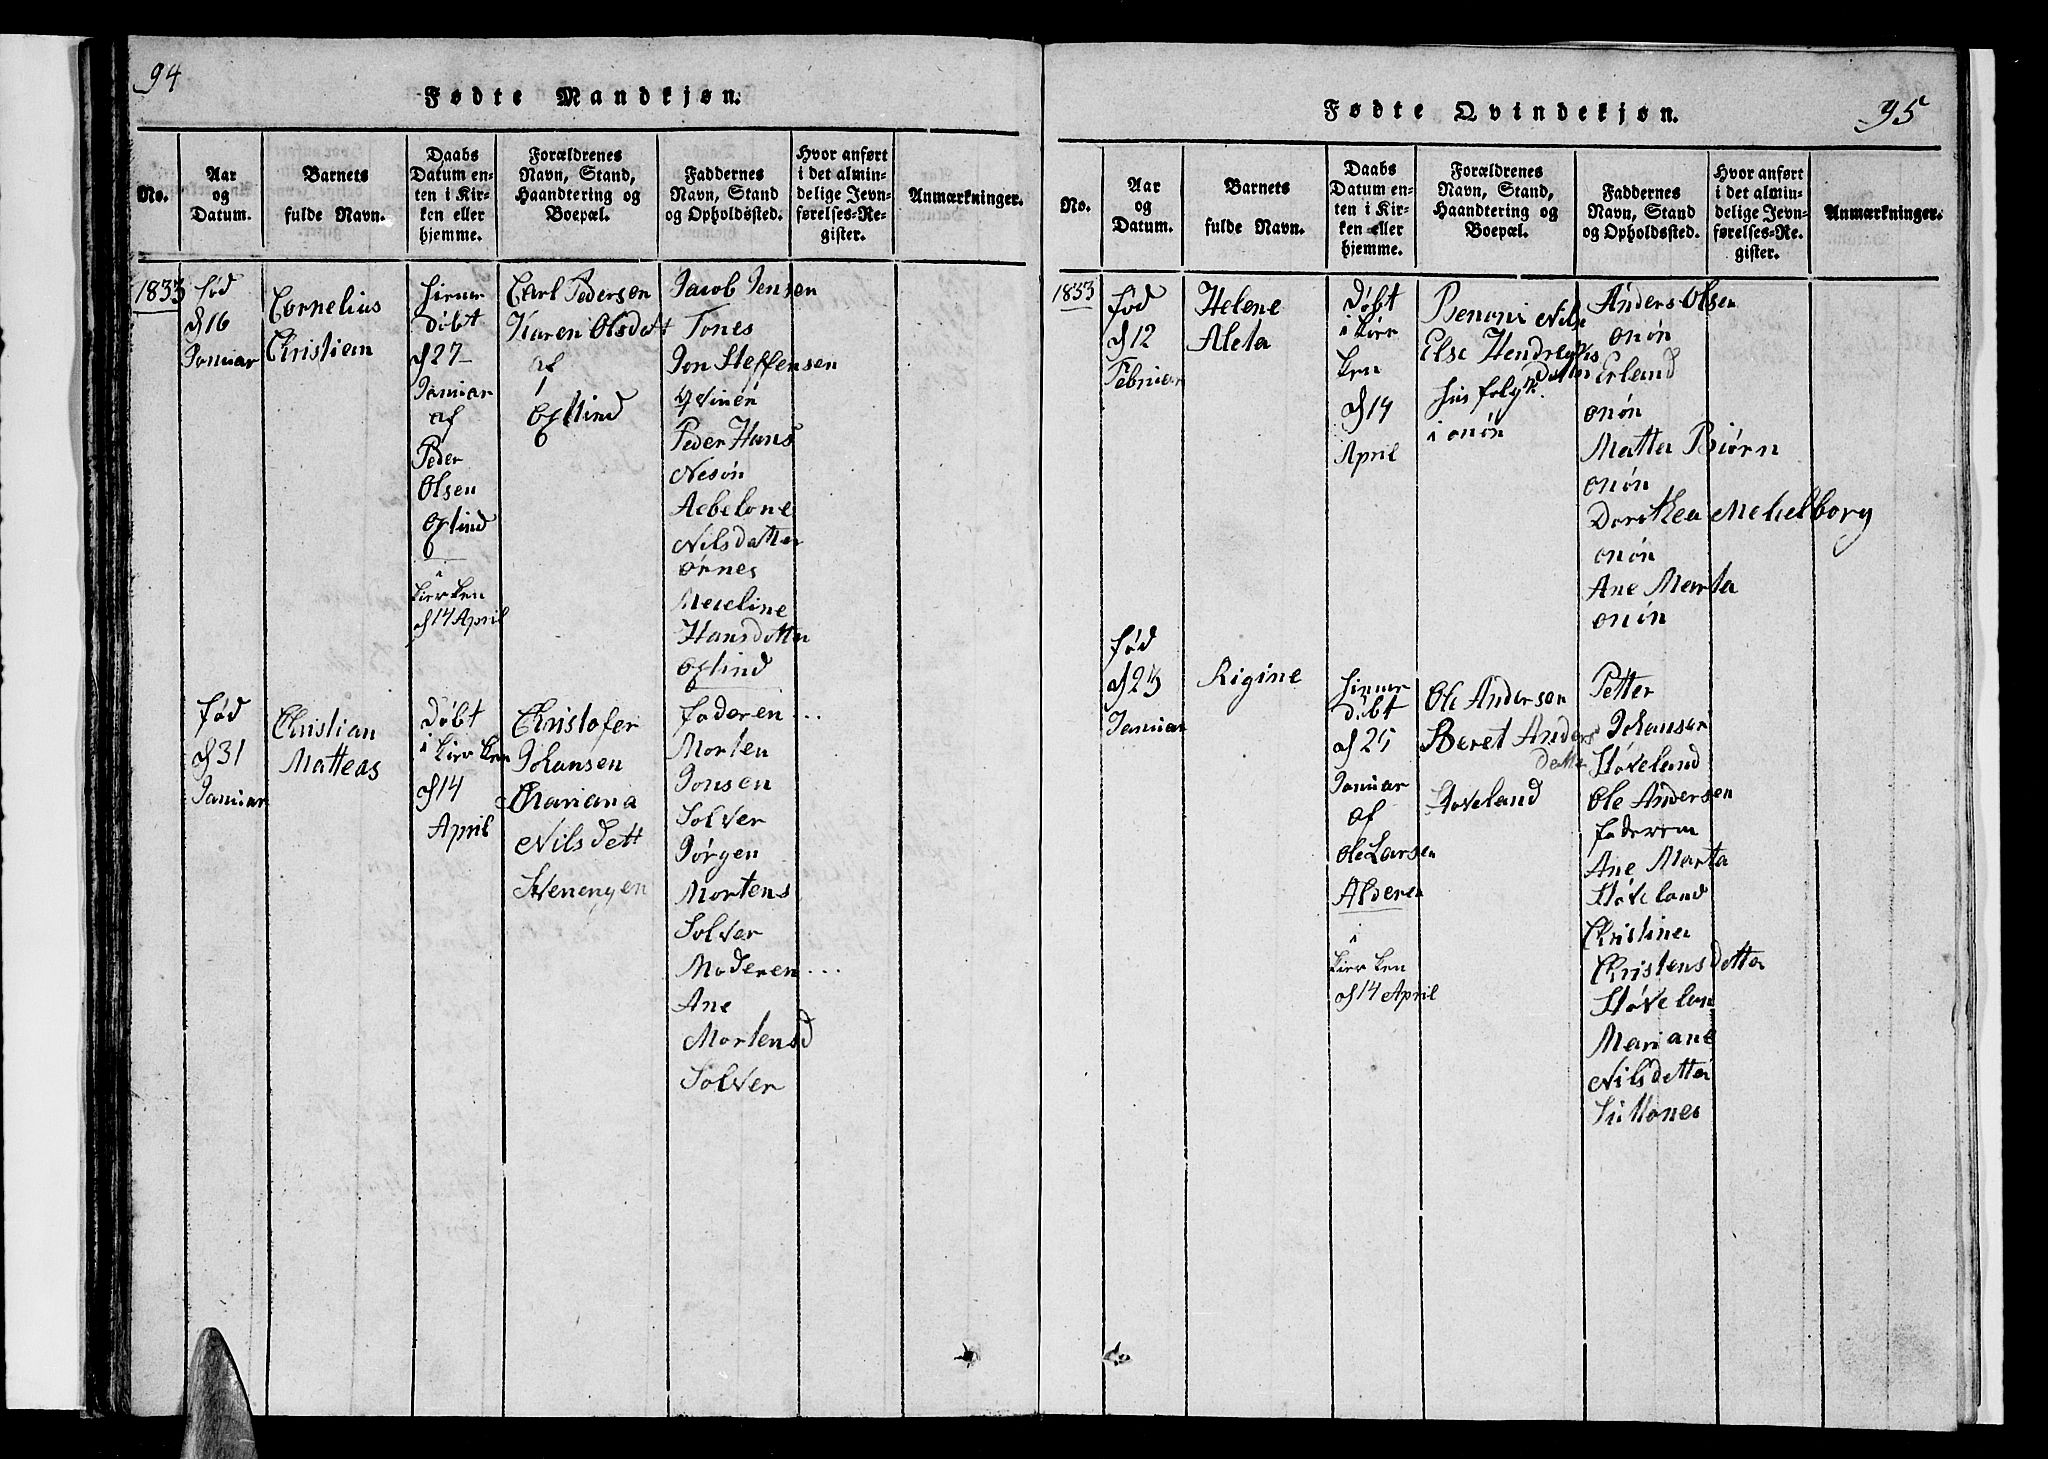 94
Fødte Mandkjøn.
No.
Aar
og
Datum.
Barnets
fulde Navn.
Daabs
Datum en-
ten i Kir-
ken eller
hjemme.
Forældrenes
Navn, Stand,
Haandtering og
Boepæl.
Faddernes
Navn, Stand
og Opholdssted.
Hvor anført
i det almin-
delige Jevn-
førelses-Re-
gister.
Anmærkninger.
1833
fød
d 16
Januar
Cornelius
Christian
Døbt
d 27
Januar
af
Peder
Olsen
i
kierken
d 14 April
Carl Pedersen
Karen Olsdatt
af
Jacob Jensen
Tones
Jon Steffensen
Peder Hans
Nesøn
Aebelone
Nilsdatter
ørnes
Hansdetter
fød
d 31
Januar
Christian
Matteas
Døbt
i kierken
d 14
April
Christofer
Johansen
Mariana
Nilsdett
Svenengen
faderen ...
Morten
Jonsen
Solver
Jørgen
Mortens
Solver
Moderen ...
Ane
Mortensd
Solver
95
Fødte Qvindekjøn.
No.
Aar
og
Datum.
Barnets
fulde Navn.
Daabs
Datum en-
ten i Kir-
ken eller
hjemme.
Forældrenes
Navn, Stand,
Haandtering og
Boepæl.
Faddernes
Navn, Stand
og Opholdssted.
Hvor anført
i det almin-
delige Jevn-
førelses-Re-
gister.
Anmærkninger.
1833
fød
d 12
Februar
Helene
Aleta
Døbt
i kier
ken
d 14
April
Benoni Nils
Else Hendrechs
Detter
i onøn
Anders Olsen
onøn
Erland
onøn
Matta Biørn
onøn
Dorthea Mehelborg
onøn
Ane Marta
onøn
fød
d 23
Januar
Rigine
Døbt
d 25
Januar
af
Ole Larsen
Alderen
i
kierken
d 14 April
Ole Andersen
Beret Anders
Detter
Støveland
Petter
Johansen
Støveland
Ole Andersen
faderen
Ane Marta
Støveland
Christinea
Christensdetter
Støvelan
Mariane
Nilsdetter